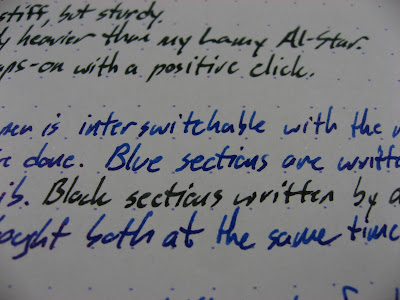 stiff, but sturdy.
heavier than my Lamy Al-Star.
with a positive click.
is interswitchable with the
done. Blue sections are
Black sections written by
both at the same time